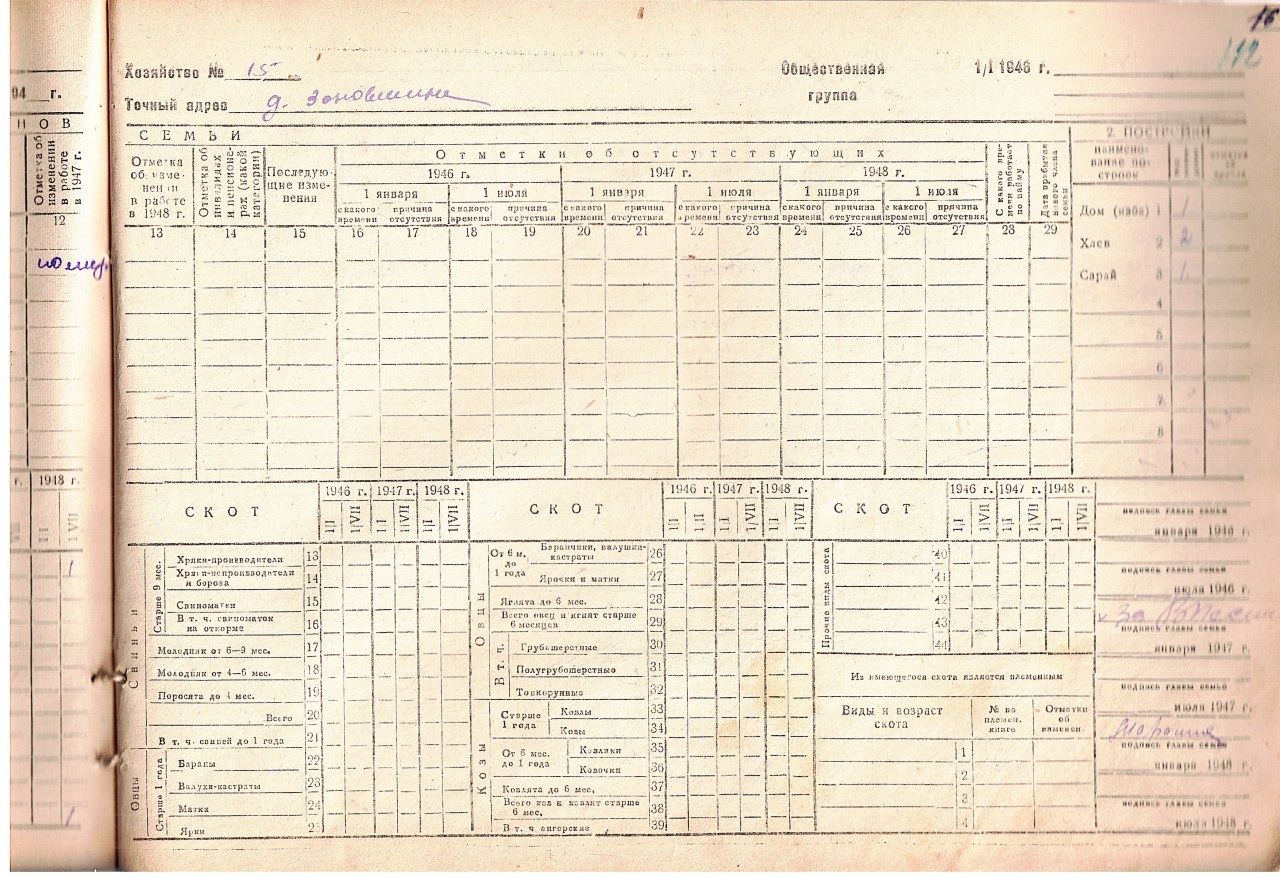 16
112
94 г.
Хозяйство № 15
Общественная группа
1/I 1946 г.
Точный адрес д. Зоновщина
Н О В
СЕМЬИ
2. ПОСТРОЙКИ
Отметка об изменении в работе в 1947 г.
Отметка об изменении в работе в 1948 г.
Отметка об инвалидах и пенсионерах (какой категории)
Последующие изменения
Отметки об отсутствующих
1946 г.
1947 г.
1948 г.
1 января
1 июля
1 января
1 июля
1 января
1 июля
с какого времени
причина отсутствия
с какого времени
причина отсутствия
с какого времени
причина отсутствия
с какого времени
причина отсутствия
с какого времени
причина отсутствия
с какого времени
причина отсутствия
С какого времени работает по найму
Дата прибытия нового члена семьи
наименование построек
12
13 14 15 16 17 18 19 20 21 22 23 24 25 26 27 28 29
Дом (изба) 1 1
Хлев 2 2
Сарай 3 1
4
5
6
7
8
г. 1948 г.
1/I 1/VII
1
1
СКОТ
1946 г. 1947 г. 1948 г.
1/I 1/VII 1/I 1/VII 1/I 1/VII
Свиньи
Старше 9 мес.
Хряки-производители 13
Хряки-непроизводители и борова 14
Свиноматки 15
В т. ч. свиноматок на откорме 16
Молодняк от 6—9 мес. 17
Молодняк от 4—6 мес. 18
Поросята до 4 мес. 19
Всего 20
В т. ч. свиней до 1 года 21
Овцы
Старше 1 года
Бараны 22
Валухи-кастраты 23
Матки 24
Ярки 25
СКОТ
1946 г. 1947 г. 1948 г.
1/I 1/VII 1/I 1/VII 1/I 1/VII
Овцы
От 6 м. до 1 года
Баранчики, валушки-кастраты 26
Ярочки и матки 27
Ягнята до 6 мес. 28
Всего овец и ягнят старше 6 месяцев 29
В т. ч.
Грубошерстные 30
Полугрубошерстные 31
Тонкорунные 32
Козы
Старше 1 года
Козлы 33
Козы 34
От 6 мес. до 1 года
Козлики 35
Козочки 36
Козлята до 6 мес. 37
Всего коз и козлят старше 6 мес. 38
В т. ч. ангорские 39
СКОТ
1946 г. 1947 г. 1948 г.
1/I 1/VII 1/I 1/VII 1/I 1/VII
Прочие виды скота
40
41
42
43
44
Из имеющегося скота является племенным
Виды и возраст скота
№ по племен. книге
Отметки об изменен.
1
2
3
4
подпись главы семьи
января 1946 г.
подпись главы семьи
июля 1946 г.
подпись главы семьи
января 1947 г.
подпись главы семьи
июля 1947 г.
подпись главы семьи
января 1948 г.
подпись главы семьи
июля 1948 г.